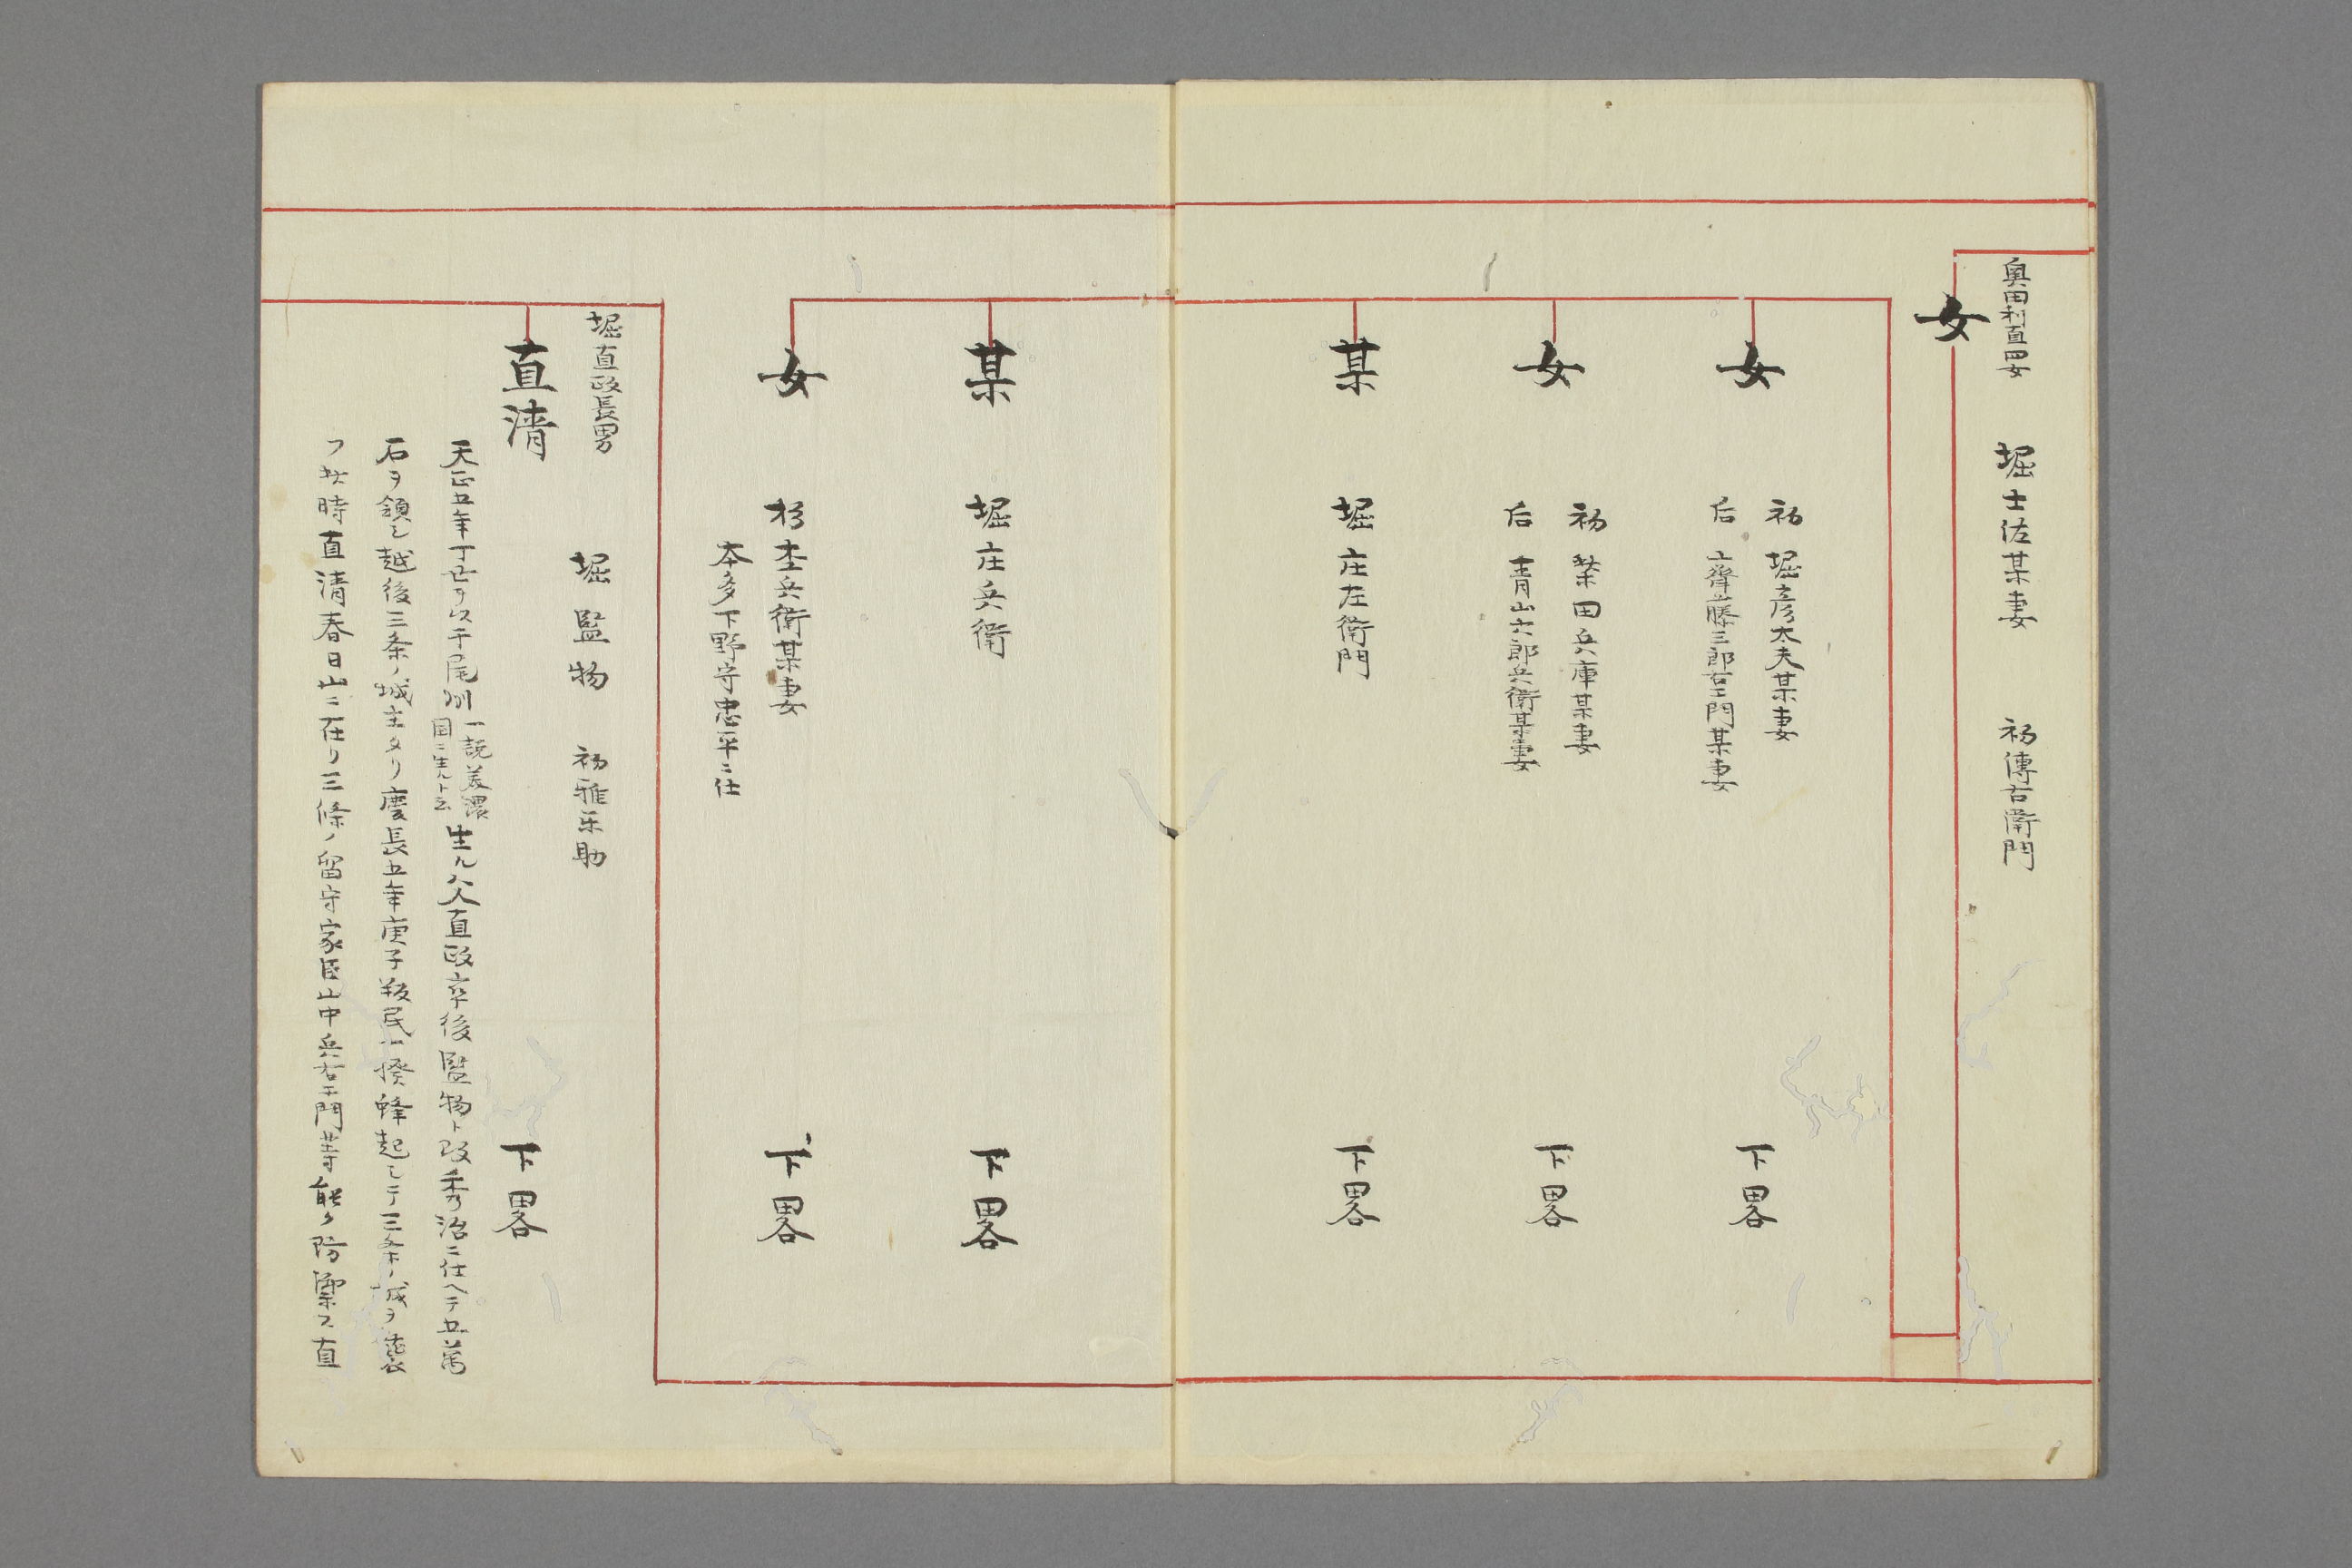 奥田利直四女
女
堀士佐某妻　初傳右衛門
女
初　堀彦太夫某妻
后　齋藤三郎右エ門某妻
下畧
女
初　柴田兵庫某妻
后　青山六郎兵衛某妻
下畧
某
堀庄左衛門
下畧
某
堀庄兵衛
下畧
女
杉杢兵衛某妻
本多下野守忠平ニ仕
下畧
堀直政長男
直清
堀監物　初雅楽助
下畧
天正五年丁丑ヲ以テ尾州
一説美濃
国ニ生ルト云
生ル父直政卒後監物ト改秀治ニ仕ヘテ五萬
石ヲ領シ越後三条ノ城主タリ慶長五年庚子叛民一揆蜂起シテ三条ノ城ヲ襲
フ此時直清春日山ニ在リ三條ノ留守家臣山中兵右エ門等能ク防禦ス直